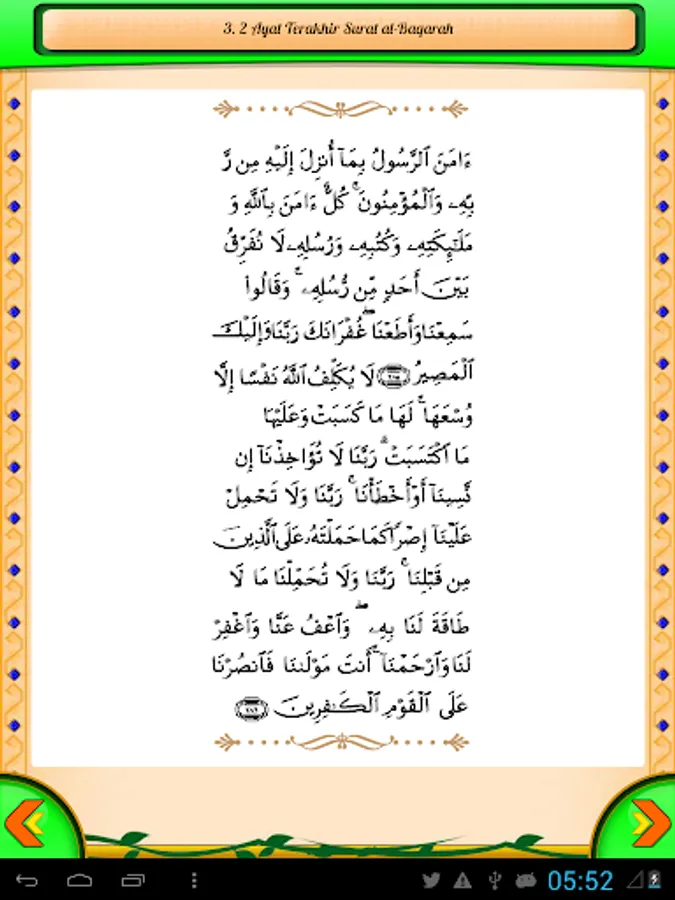 3. 2 Ayat Terakhir Surat al-Baqarah
ءَامَنَ ٱلرَّسُولُ بِمَآ أُنزِلَ إِلَيْهِ مِن رَّ
بِّهِۦ وَٱلْمُؤْمِنُونَ ۚ كُلٌّ ءَامَنَ بِٱللَّهِ وَ
مَلَـٰٓئِكَتِهِۦ وَكُتُبِهِۦ وَرُسُلِهِۦ لَا نُفَرِّقُ
بَيْنَ أَحَدٍ مِّن رُّسُلِهِۦ ۚ وَقَالُوا۟
سَمِعْنَا وَأَطَعْنَا ۖ غُفْرَانَكَ رَبَّنَا وَإِلَيْكَ
ٱلْمَصِيرُ ﴿٢٨٥﴾ لَا يُكَلِّفُ ٱللَّهُ نَفْسًا إِلَّا
وُسْعَهَا ۚ لَهَا مَا كَسَبَتْ وَعَلَيْهَا
مَا ٱكْتَسَبَتْ ۗ رَبَّنَا لَا تُؤَاخِذْنَآ إِن
نَّسِينَآ أَوْ أَخْطَأْنَا ۚ رَبَّنَا وَلَا تَحْمِلْ
عَلَيْنَآ إِصْرًا كَمَا حَمَلْتَهُۥ عَلَى ٱلَّذِينَ
مِن قَبْلِنَا ۚ رَبَّنَا وَلَا تُحَمِّلْنَا مَا لَا
طَاقَةَ لَنَا بِهِۦ ۖ وَٱعْفُ عَنَّا وَٱغْفِرْ
لَنَا وَٱرْحَمْنَآ ۚ أَنتَ مَوْلَىٰنَا فَٱنصُرْنَا
عَلَى ٱلْقَوْمِ ٱلْكَـٰفِرِينَ ﴿٢٨٦﴾
05:52